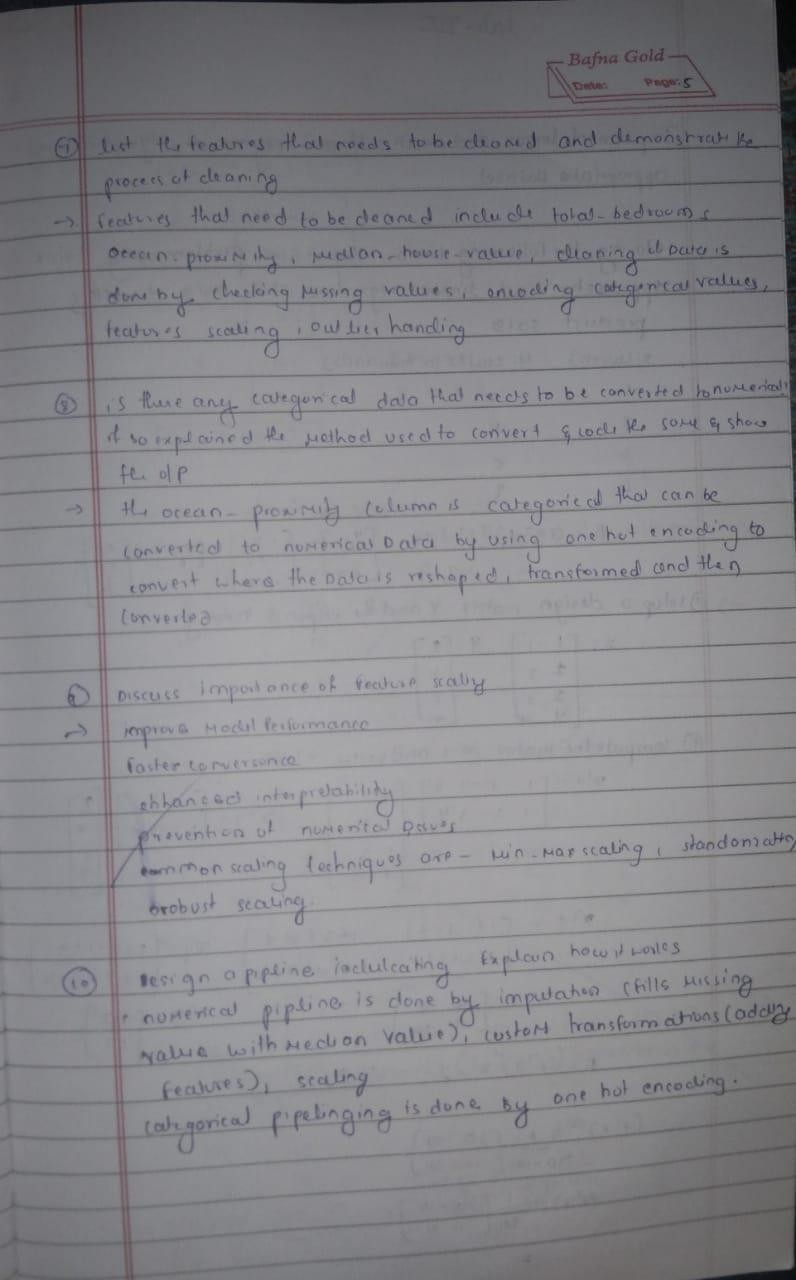 Bafna Gold
Date: Page: 5
7 list the features that needs to be cleaned and demonstrate the
process of cleaning
→ features that need to be cleaned include total-bedrooms
ocean-proximity, median-house-value, cleaning of Data is
done by checking Missing values, encoding categorical values,
features scaling, outlier handing
8 is there any categorical data that needs to be converted to numerical?
if so explained the Method used to convert & code the same & show
the o/p
→ the ocean-proximity column is categorical that can be
converted to numerical Data by using one hot encoding to
convert where the Data is reshaped, transformed and then
converted
Discuss importance of feature scally
→ improve Model Performance
faster conversence
enhanced interpretability
prevention of numerical
common scaling techniques are - Min-Max scaling, standonization
brobust scaling.
10 Design a pipline Explain how it works
numerical pipline is done by imputation (fills Missing
value with Median value), custom transformations (adding
features), scaling
categorical pipelinging is done by one hot encoding.